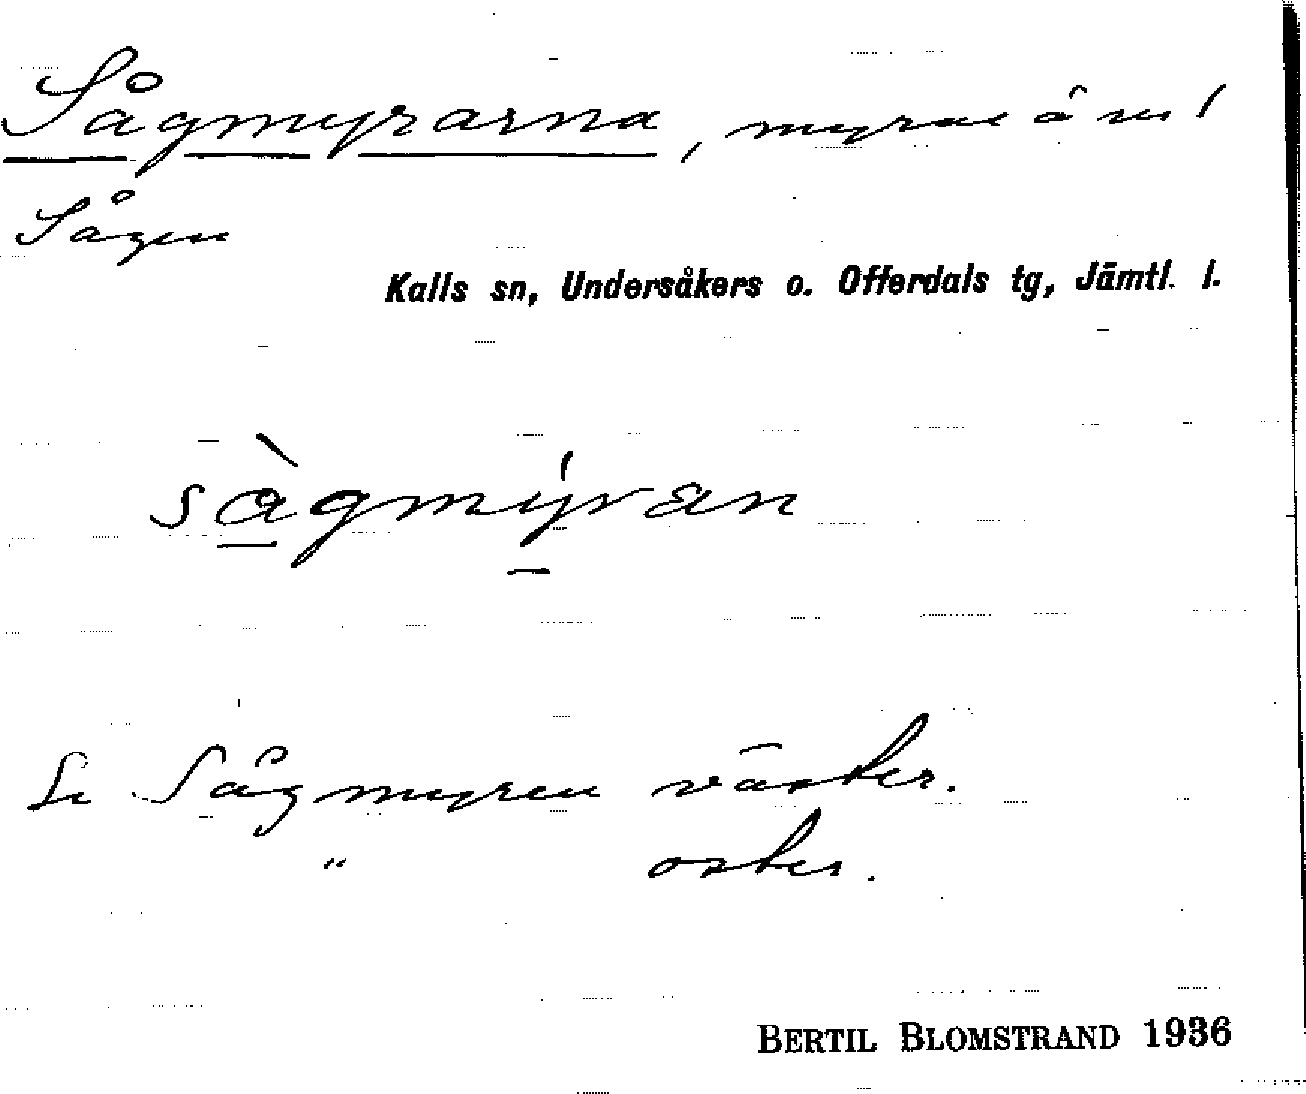 Sågmyrarna, myrar öm
Sågen
Kalls sn, Undersåkers o. Offerdals tg, Jämtl. l.
sàgmýran
Se Sågmyren väster.
" öster.
BERTIL BLOMSTRAND 1936